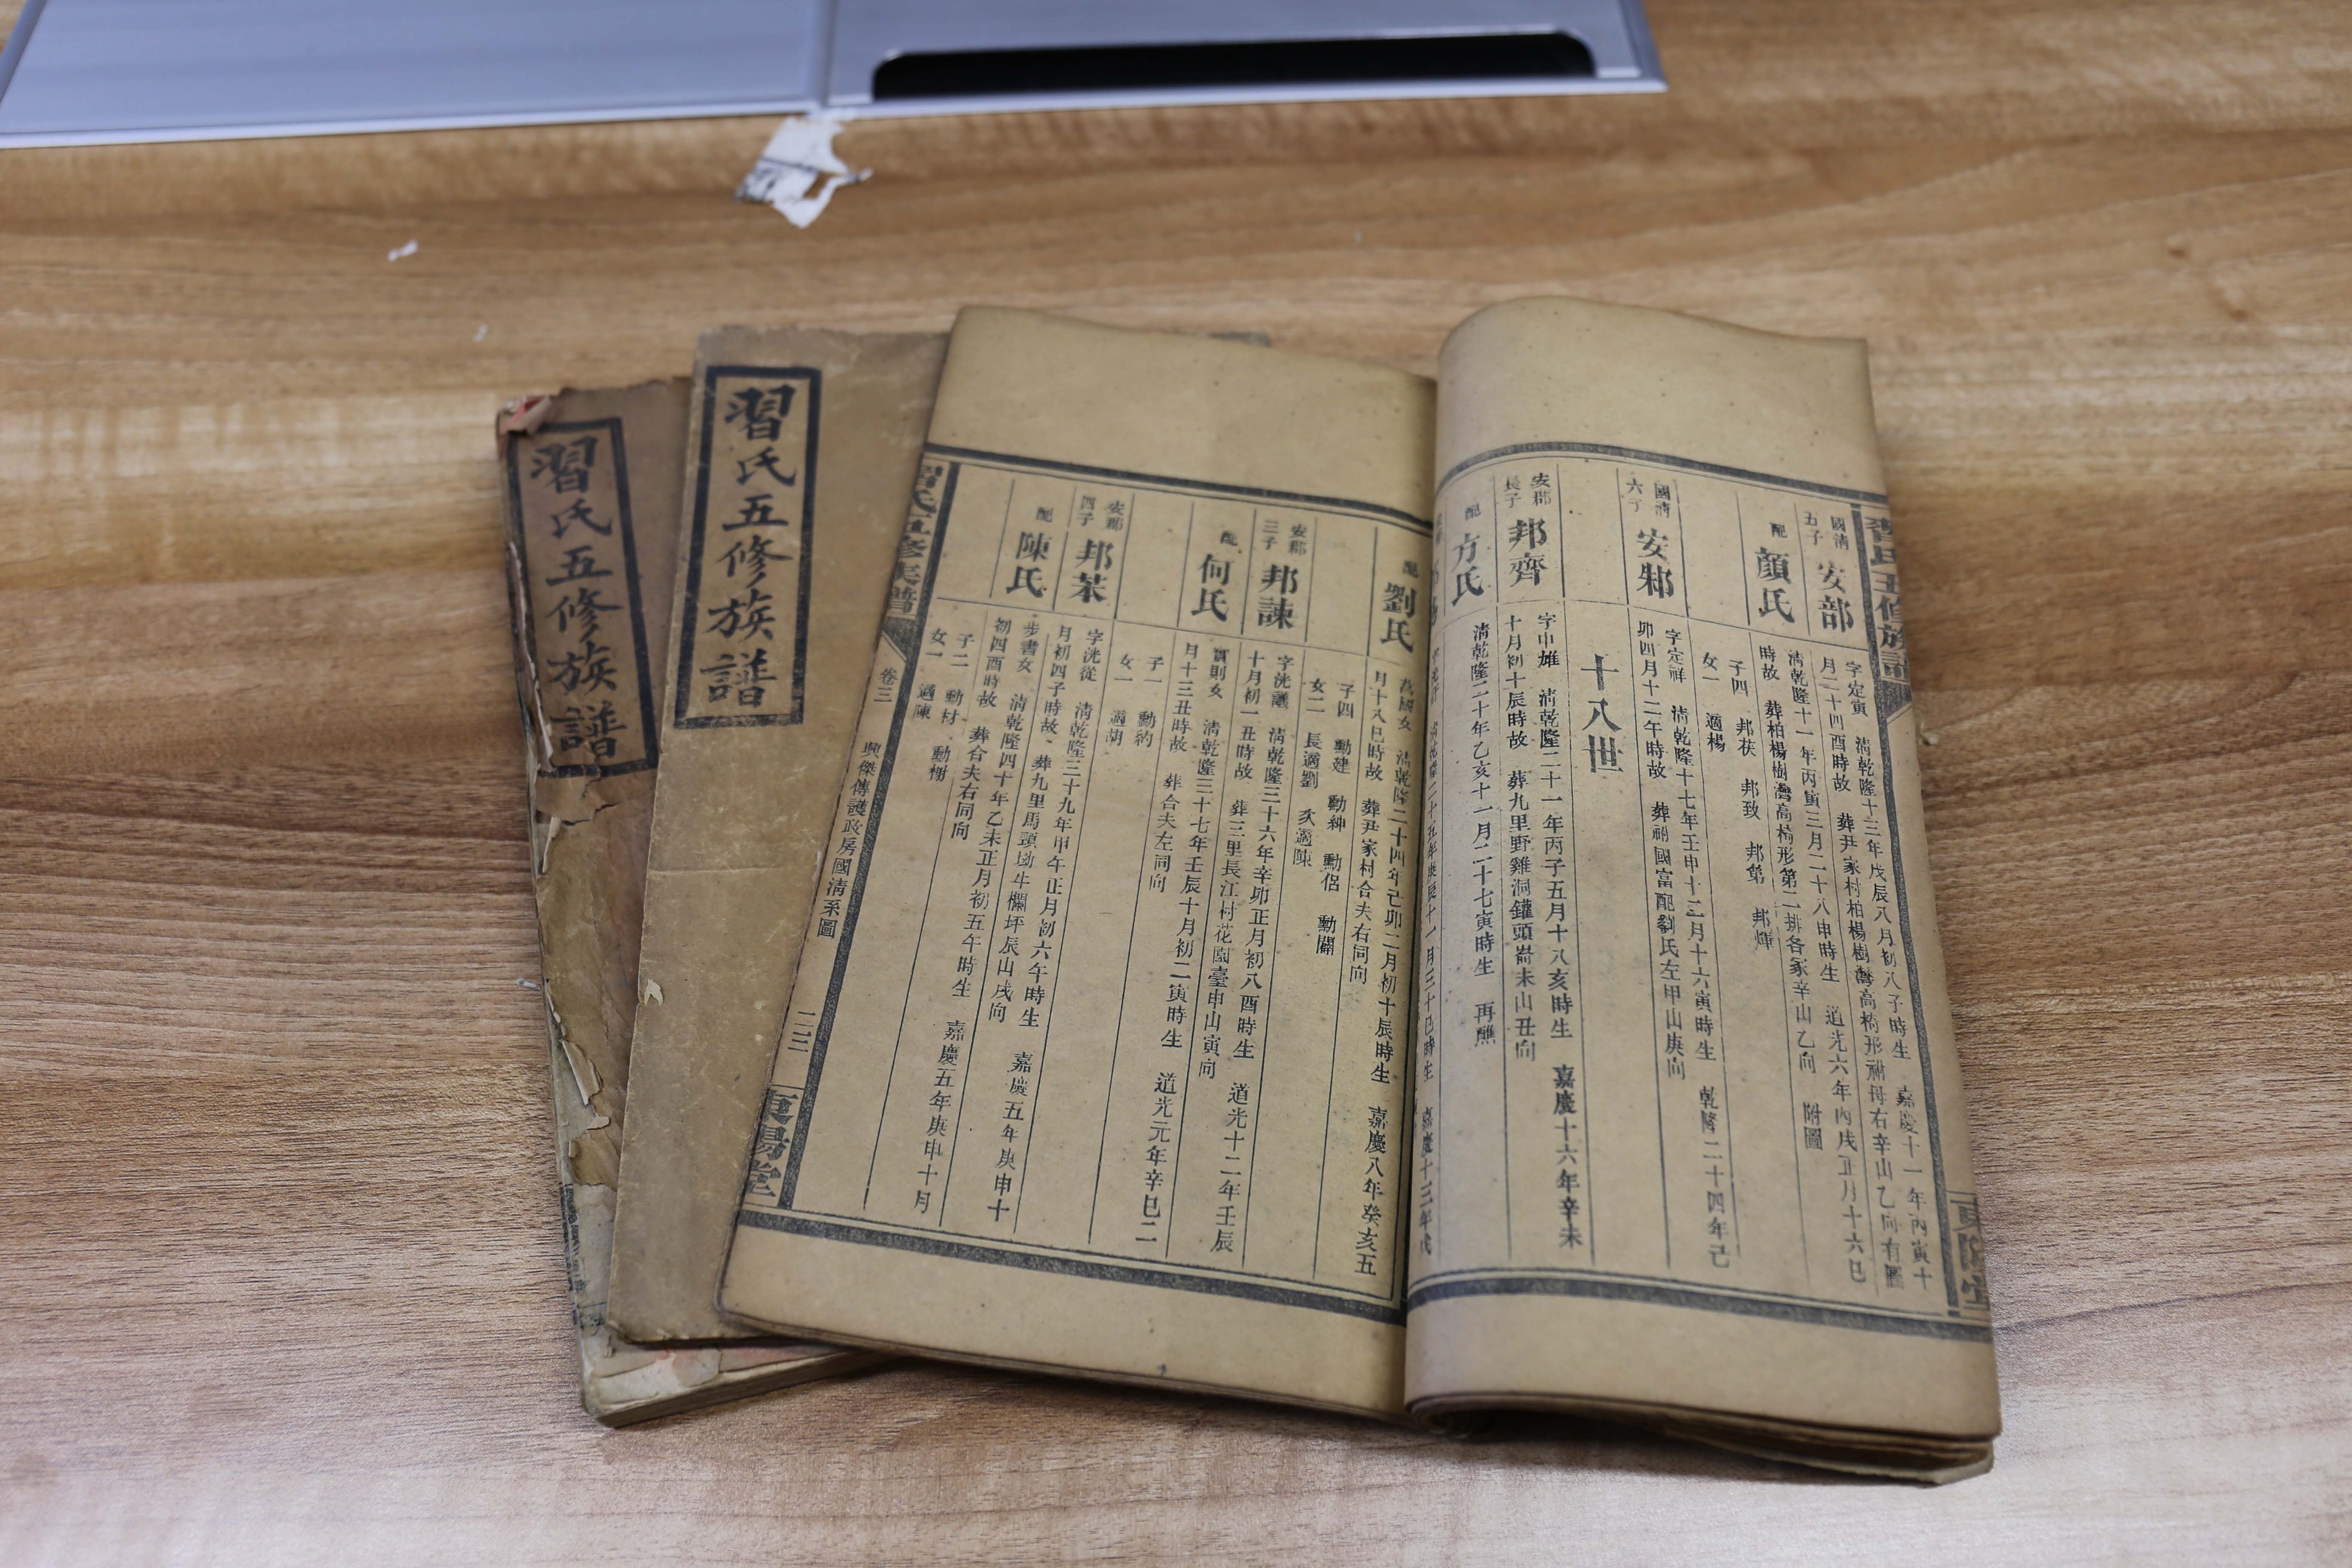 習氏五修族譜
習氏五修族譜
習氏五修族譜
國清五子 安部
字定寅 清乾隆十三年戊辰八月初八子時生 嘉慶十一年丙寅十
月二十四酉時故 葬尹家村柏楊樹灣高椅形祔母右辛山乙向有圖
配 顏氏
清乾隆十一年丙寅三月二十八申時生 道光六年丙戌正月十六巳
時故 葬柏楊樹灣高椅形第二排各冢辛山乙向 附圖
子四 邦荻 邦致 邦第 邦煇
女一 適楊
國清六子 安邾
字定祥 清乾隆十七年壬申十二月十六寅時生 乾隆二十四年己
卯四月十二午時故 葬祔國富配劉氏左甲山庚向
十八世
安郡長子 邦齊
字中雄 清乾隆二十一年丙子五月十八亥時生 嘉慶十六年辛未
十月初十辰時故 葬九里野雞洞鑵頭崙未山丑向
配 方氏
清乾隆二十年乙亥十一月二十七寅時生 再醮
配 劉氏
萬國女 清乾隆二十四年己卯二月初十辰時生 嘉慶八年癸亥五
月十八巳時故 葬尹家村合夫右同向
子四 勳建 勳紳 勳侶 勳闢
女二 長適劉 次適陳
安郡三子 邦諫
字洸議 清乾隆三十六年辛卯正月初八酉時生 道光十二年壬辰
十月初一丑時故 葬三里長江村花園臺申山寅向
配 何氏
寶則女 清乾隆三十七年壬辰十月初二寅時生 道光元年辛巳二
月十三丑時故 葬合夫左同向
子一 勳約
女一 適胡
安郡四子 邦苿
字洸從 清乾隆三十九年甲午正月初六午時生 嘉慶五年庚申十
月初四子時故 葬九里馬頭坳牛欄坪辰山戌向
配 陳氏
步書女 清乾隆四十年乙未正月初五午時生 嘉慶五年庚申十月
初四酉時故 葬合夫右同向
子二 勳材 勳榭
女一 適陳
習氏五修族譜 卷三 興傑傳護政房國清系圖 二三 東陽堂